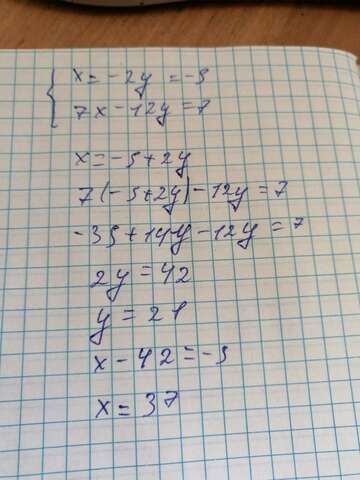 x = -2y = -5
7x - 12y = 7
x = -5 + 2y
7(-5 + 2y) - 12y = 7
-35 + 14y - 12y = 7
2y = 42
y = 21
x - 42 = -5
x = 37